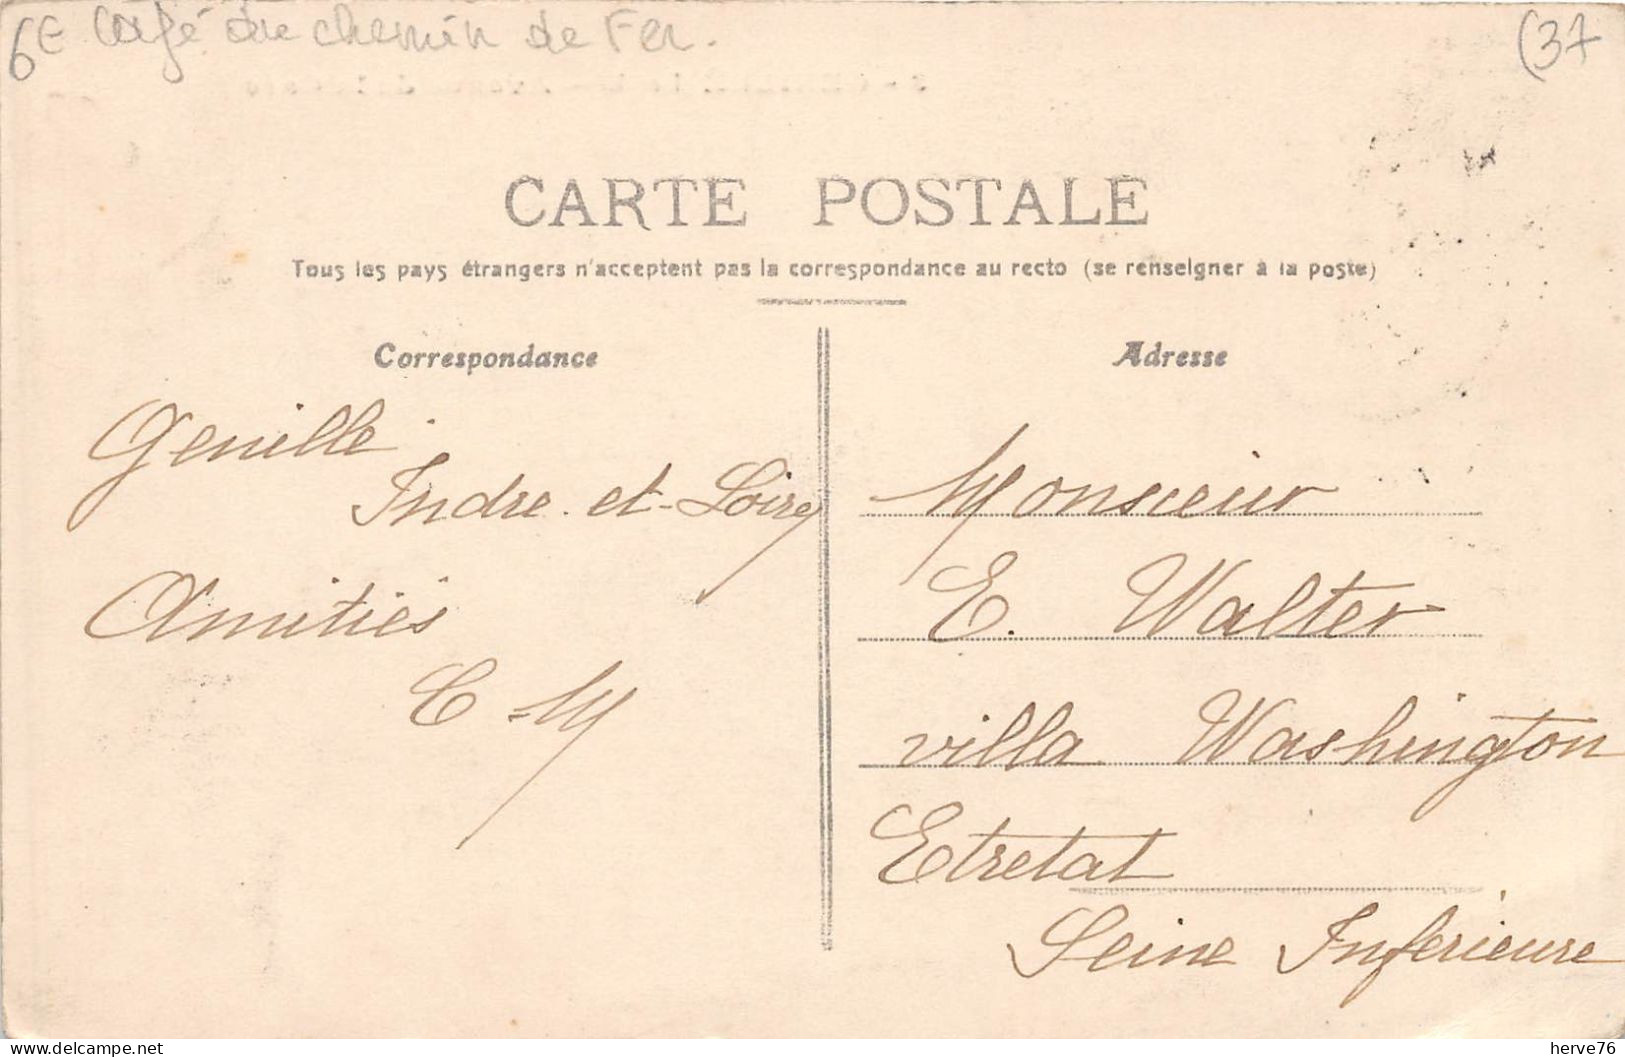 6E Café du chemin de Fer.
(37
CARTE POSTALE
Tous les pays étrangers n'acceptent pas la correspondance au recto (se renseigner à la poste)
Correspondance
Genillé
Indre-et-Loire
Amitiés
E-M
Adresse
Monsieur
E. Walter
villa Washington
Etretat
Seine Inferieure
herve76